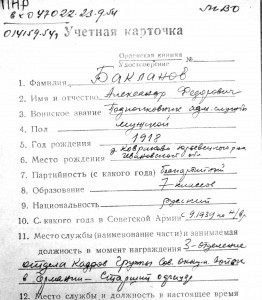 вх 047022-23.9.54
014159.54г.
Учетная карточка
Орденская книжка
Удостоверение №
1. Фамилия Бакланов
2. Имя и отчество Александр Федорович
3. Воинское звание Подполковник адм. службы
4. Пол мужской
5. Год рождения 1918
6. Место рождения Ивановской обл.
7. Партийность (с какого года) беспартийный
8. Образование 7 классов
9. Национальность русский
10. С какого года в Советской Армии с 9.1939 по н/в.
11. Место службы (наименование части) и занимаемая
должность в момент награждения 3-отделение
отдела кадров Группы Сов. оккуп. войск
в Германии - Старший офицер
12. Место службы и должность в настоящее время